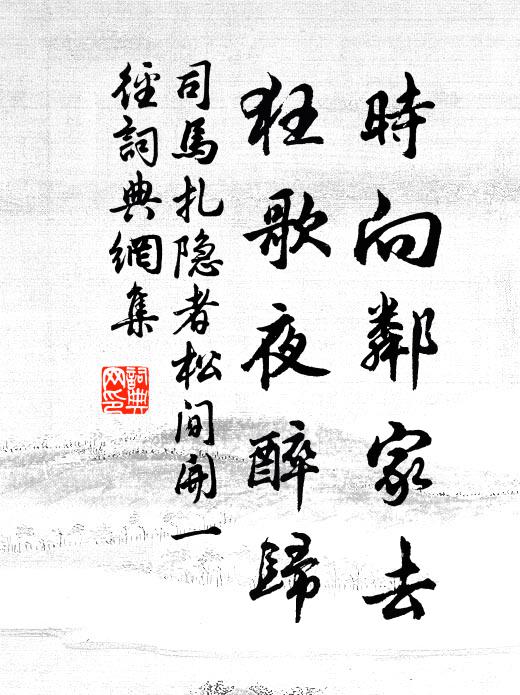 時向鄰家去
狂歌夜醉歸
司馬扎隐者松间開一
徑詞典網集
詞典
网印